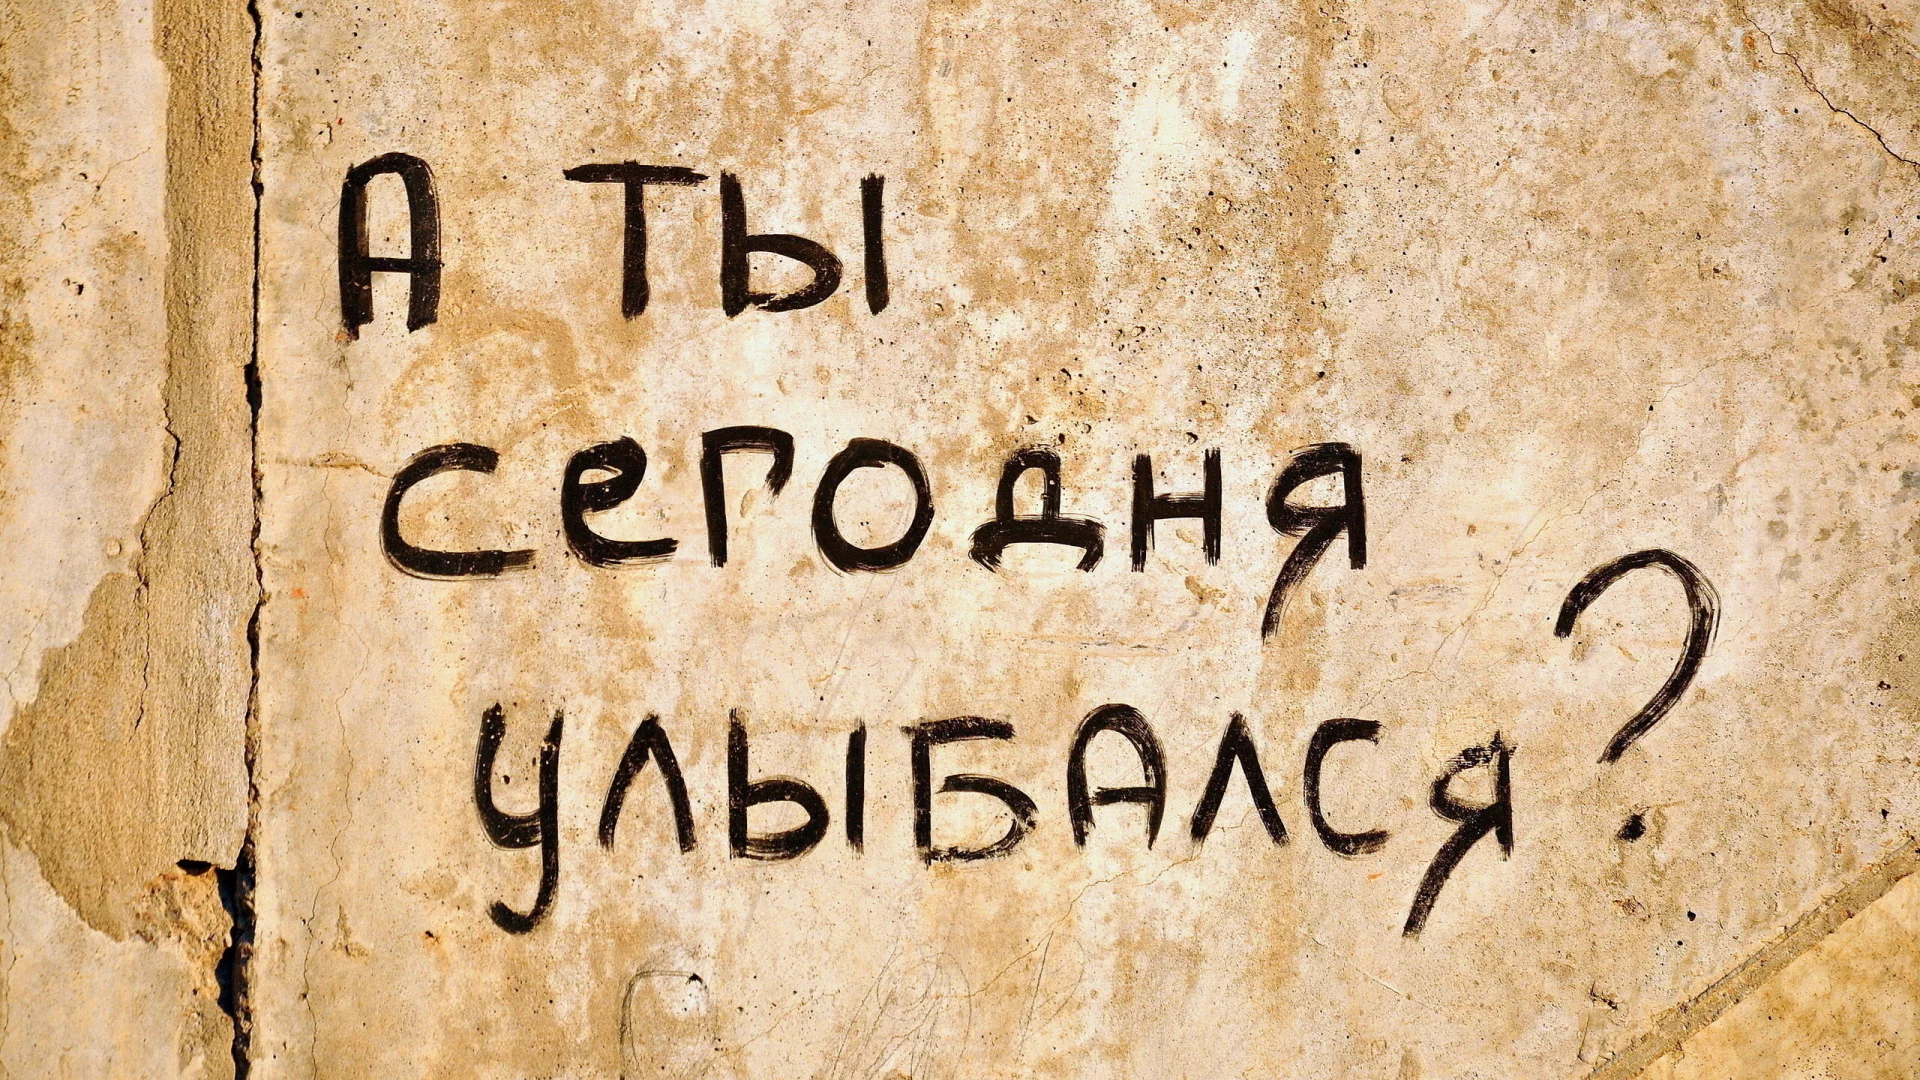 А ТЫ
сегодня
улыБАлся?